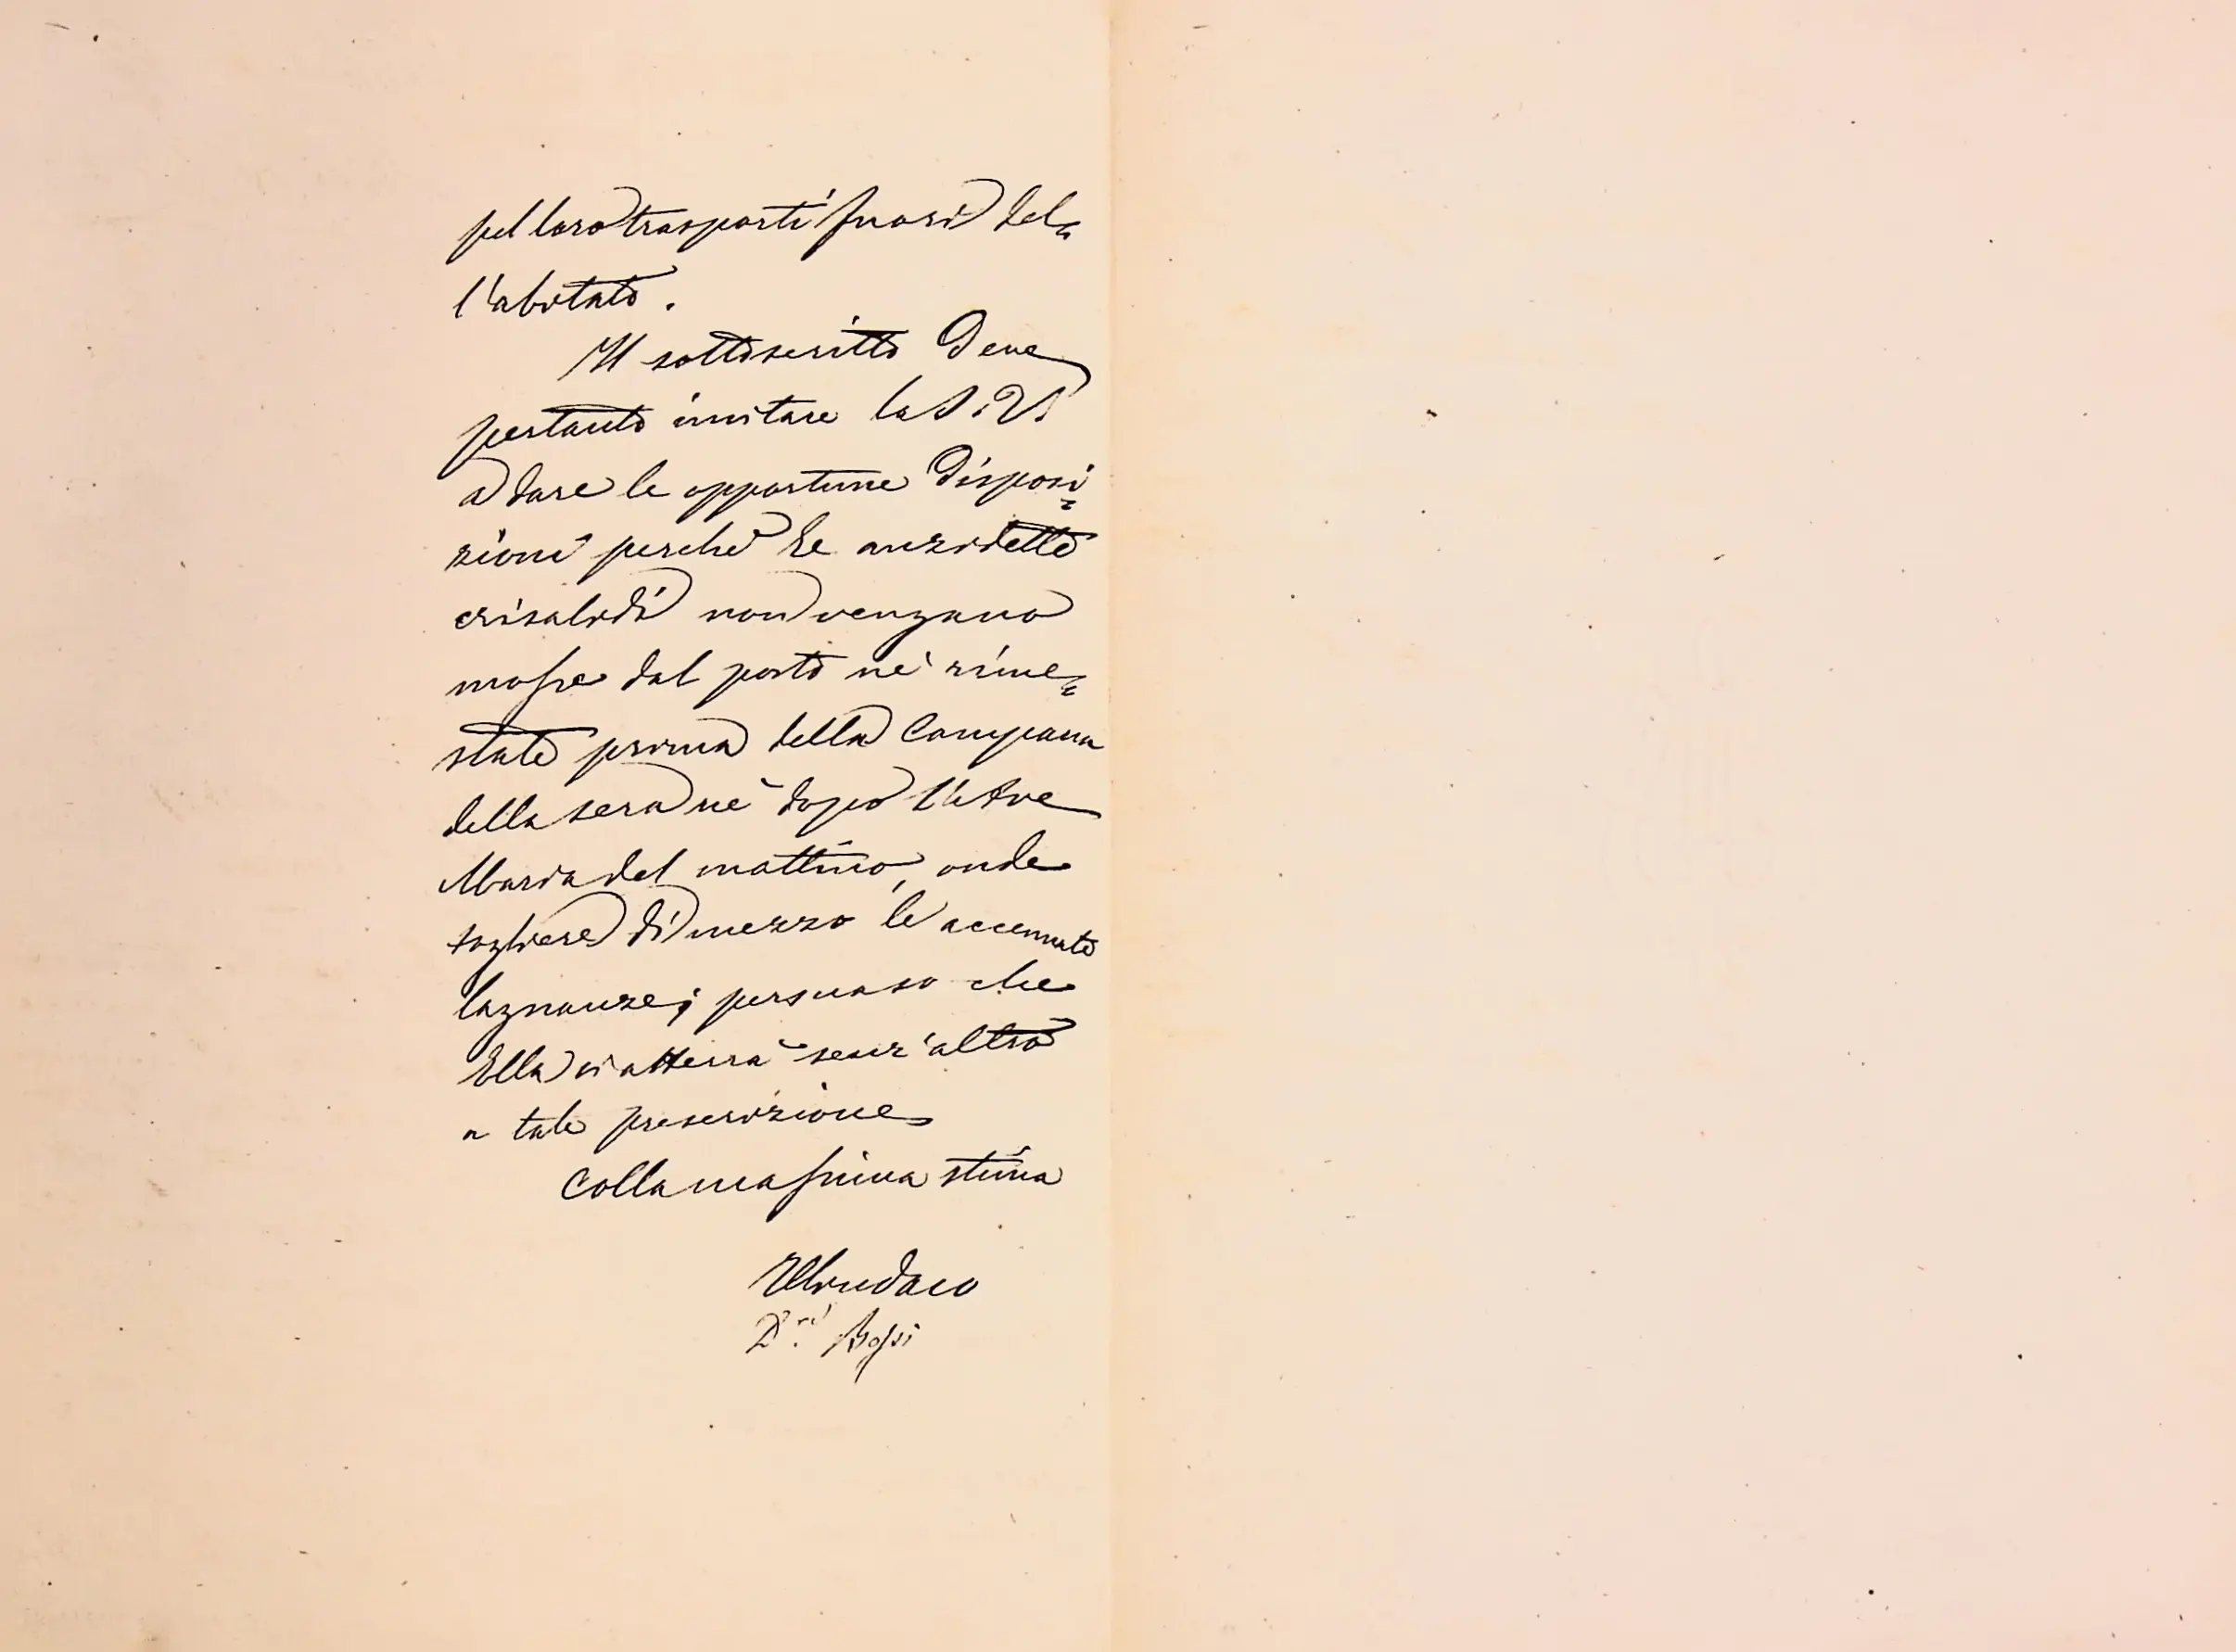 pel loro trasporti fuori del
l'abitato.
Il sottoscritto deve
pertanto invitare la S. V.
a dare le opportune disposi=
zioni perchè le anzidette
crisalidi non vengano
mosse dal posto nè rime=
state prima della Campana
della sera nè dopo l'Ave
Maria del mattino, onde
togliere di mezzo le accennate
lagnanze; persuaso che
Ella si atterrà senz'altro
a tale prescrizione
Colla massima stima
Il Sindaco
D.r Rossi